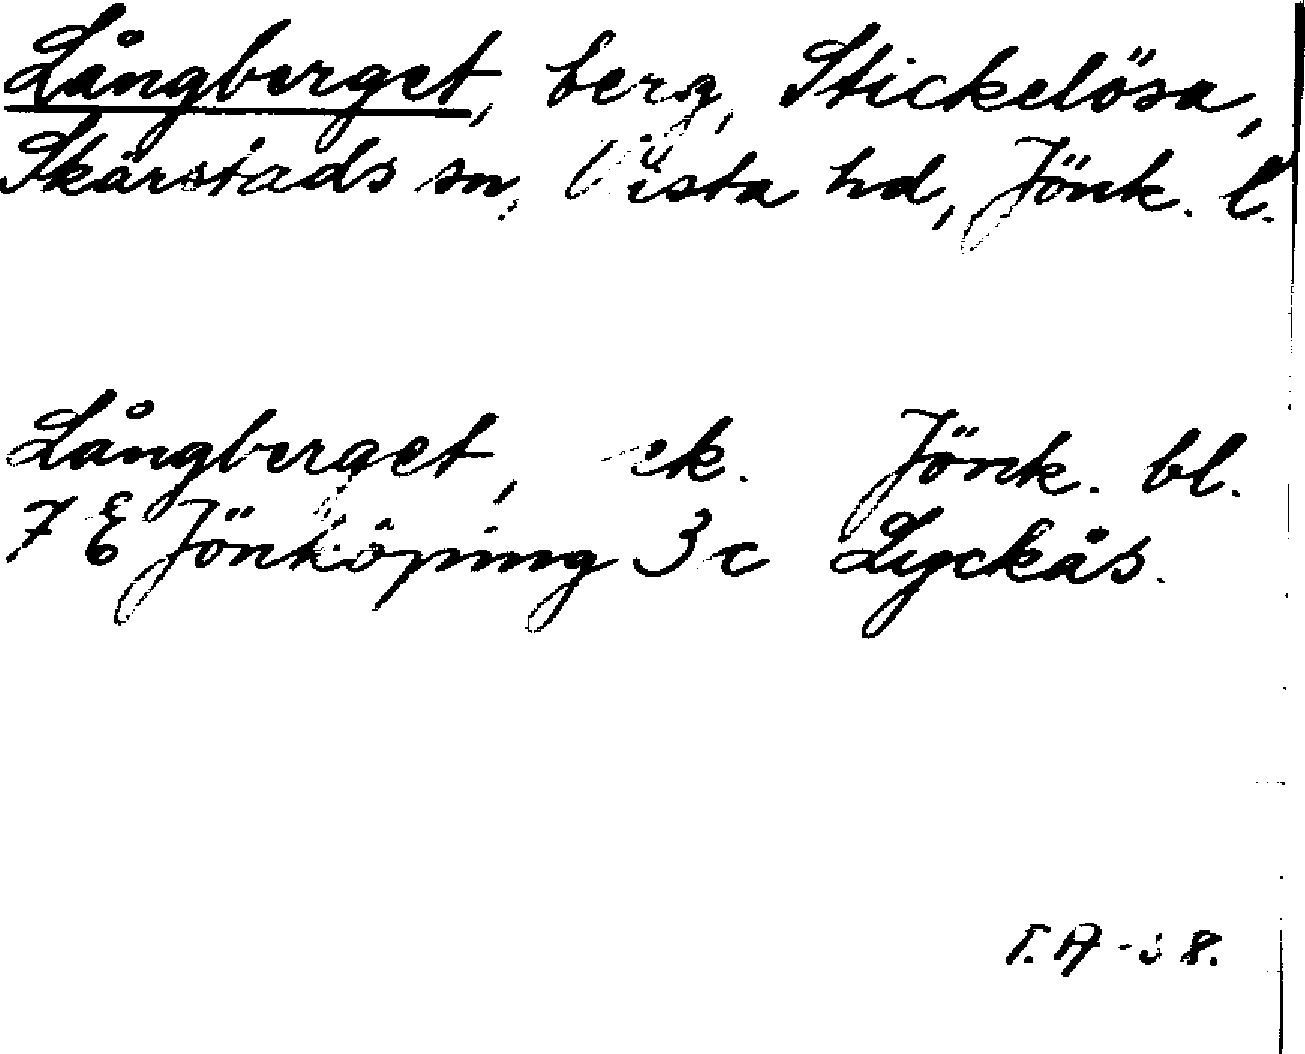 Långberget, berg, Stickelösa,
Skärstads sn, Vista hd, Jönk. l.
Långberget, ek. Jönk. bl.
7 E Jönköping 3 c Lyckås.
T.A